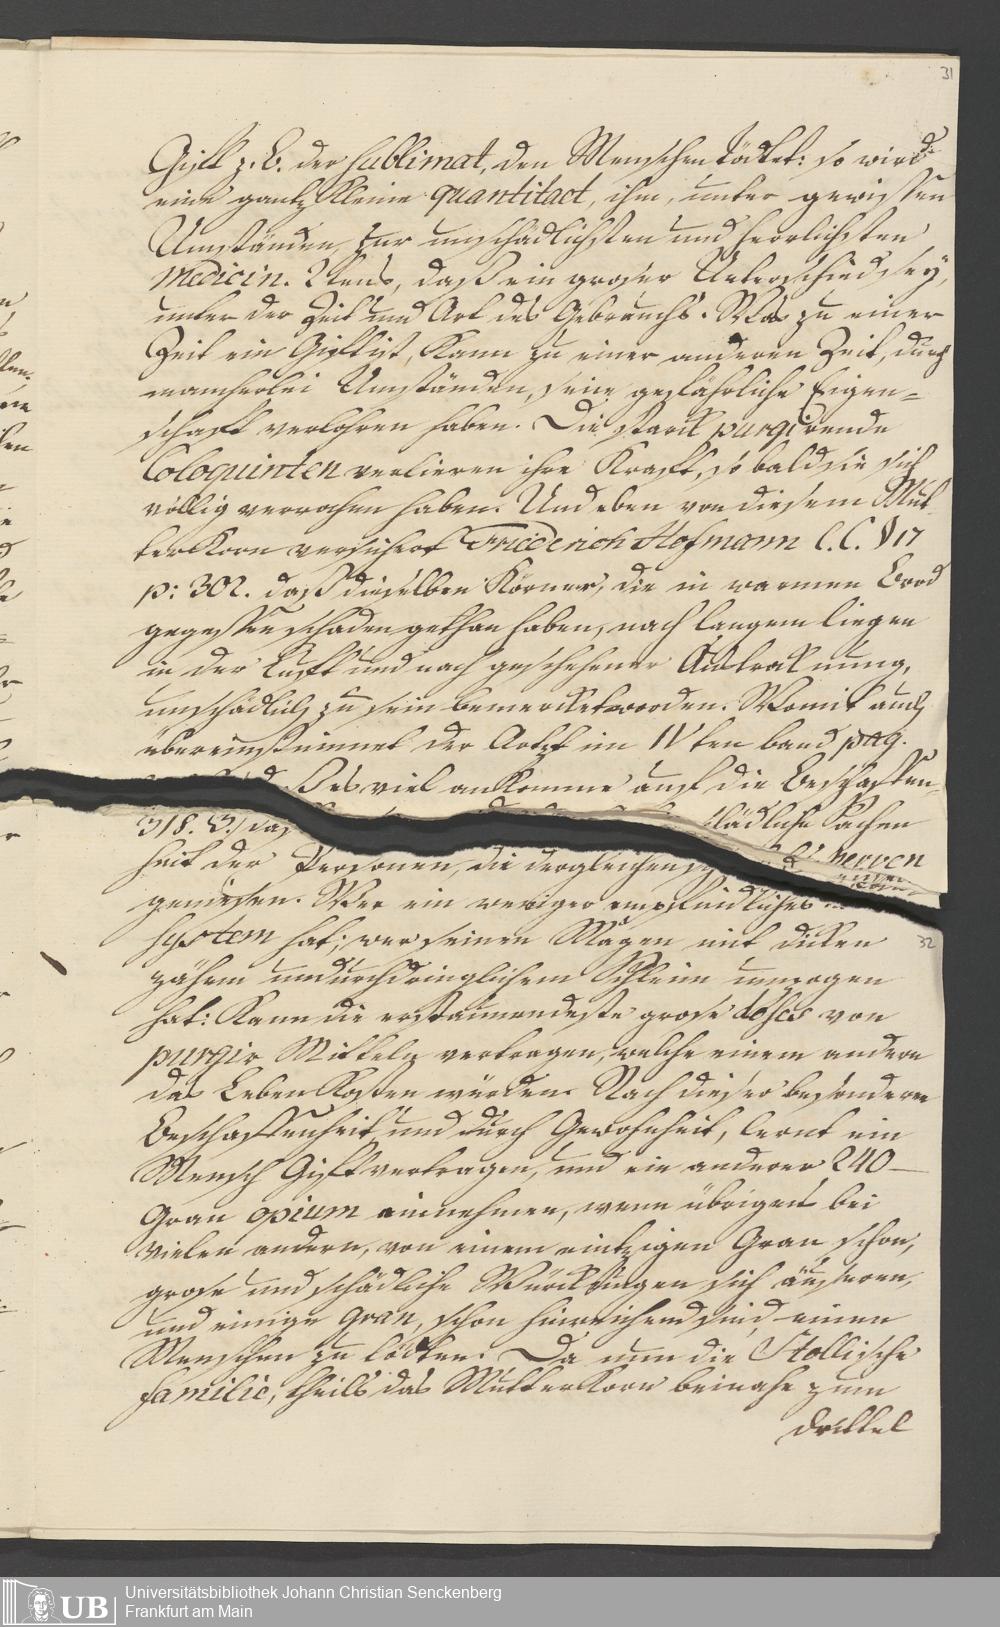 31
Gifft z. B. der Sublimat, den Menschen tödtet: so wird
eine gantz kleine quantitaet, ihm, unter gewissen
Umständen zur unschädlichsten und herrlichsten
Medicin. 2tens, daß ein groser Unterschied sey,
unter der Zeit und Art des Gebrauchs. Was zu einer
Zeit ein Gifft ist, kann zu einer anderen Zeit, durch
mancherlei Umständen, seine gefährliche Eigen=
schafft verlohren haben. Die starck purgirende
Coloquinten verlieren ihre Krafft, so bald sie sich
völlig verrochen haben. Und eben von diesem Mut
terkorn versichert Friederich Hofmann l. C. § 17
p: 302. daß dieselben Körner, die in warmen Brod
gegessen schaden gethan haben, nach langem liegen
in der Lufft und nach geschehener Austroknung,
unschädlich zu sein bemercket worden. Womit auch
übereinstimmet der Artzt im IVten band pag.
es viel ankomme auf die Beschaffen=
318. 3.) daß schädliche Sachen
heit der Personen, die dergleichen Nerven
geniesen. Wer ein weniger empfindliches
system hat; wer seinen Magen mit dicken
32
zähem undurchdringlichem Schleim umzogen
hat: kann die erstaunendeste grose doses von
purgir Mitteln vertragen, welche einem andern
das Leben kosten würden. Nach dieser besonderen
Beschaffenheit und durch Gewohnheit, lernt ein
Mensch Gifft vertragen, und ein anderer 240
Gran opium einnehmen, wenn übrigens bei
vielen andern, von einem eintzigen Gran schon,
grose und schädliche Würckungen sich äusseren,
und einige Gran, schon hinreichend sind einen
Menschen zu tödten. Da nun die Stollische
familie, theils das Mutterkorn beinahe zum
drittel
UB
Universitätsbibliothek Johann Christian Senckenberg
Frankfurt am Main